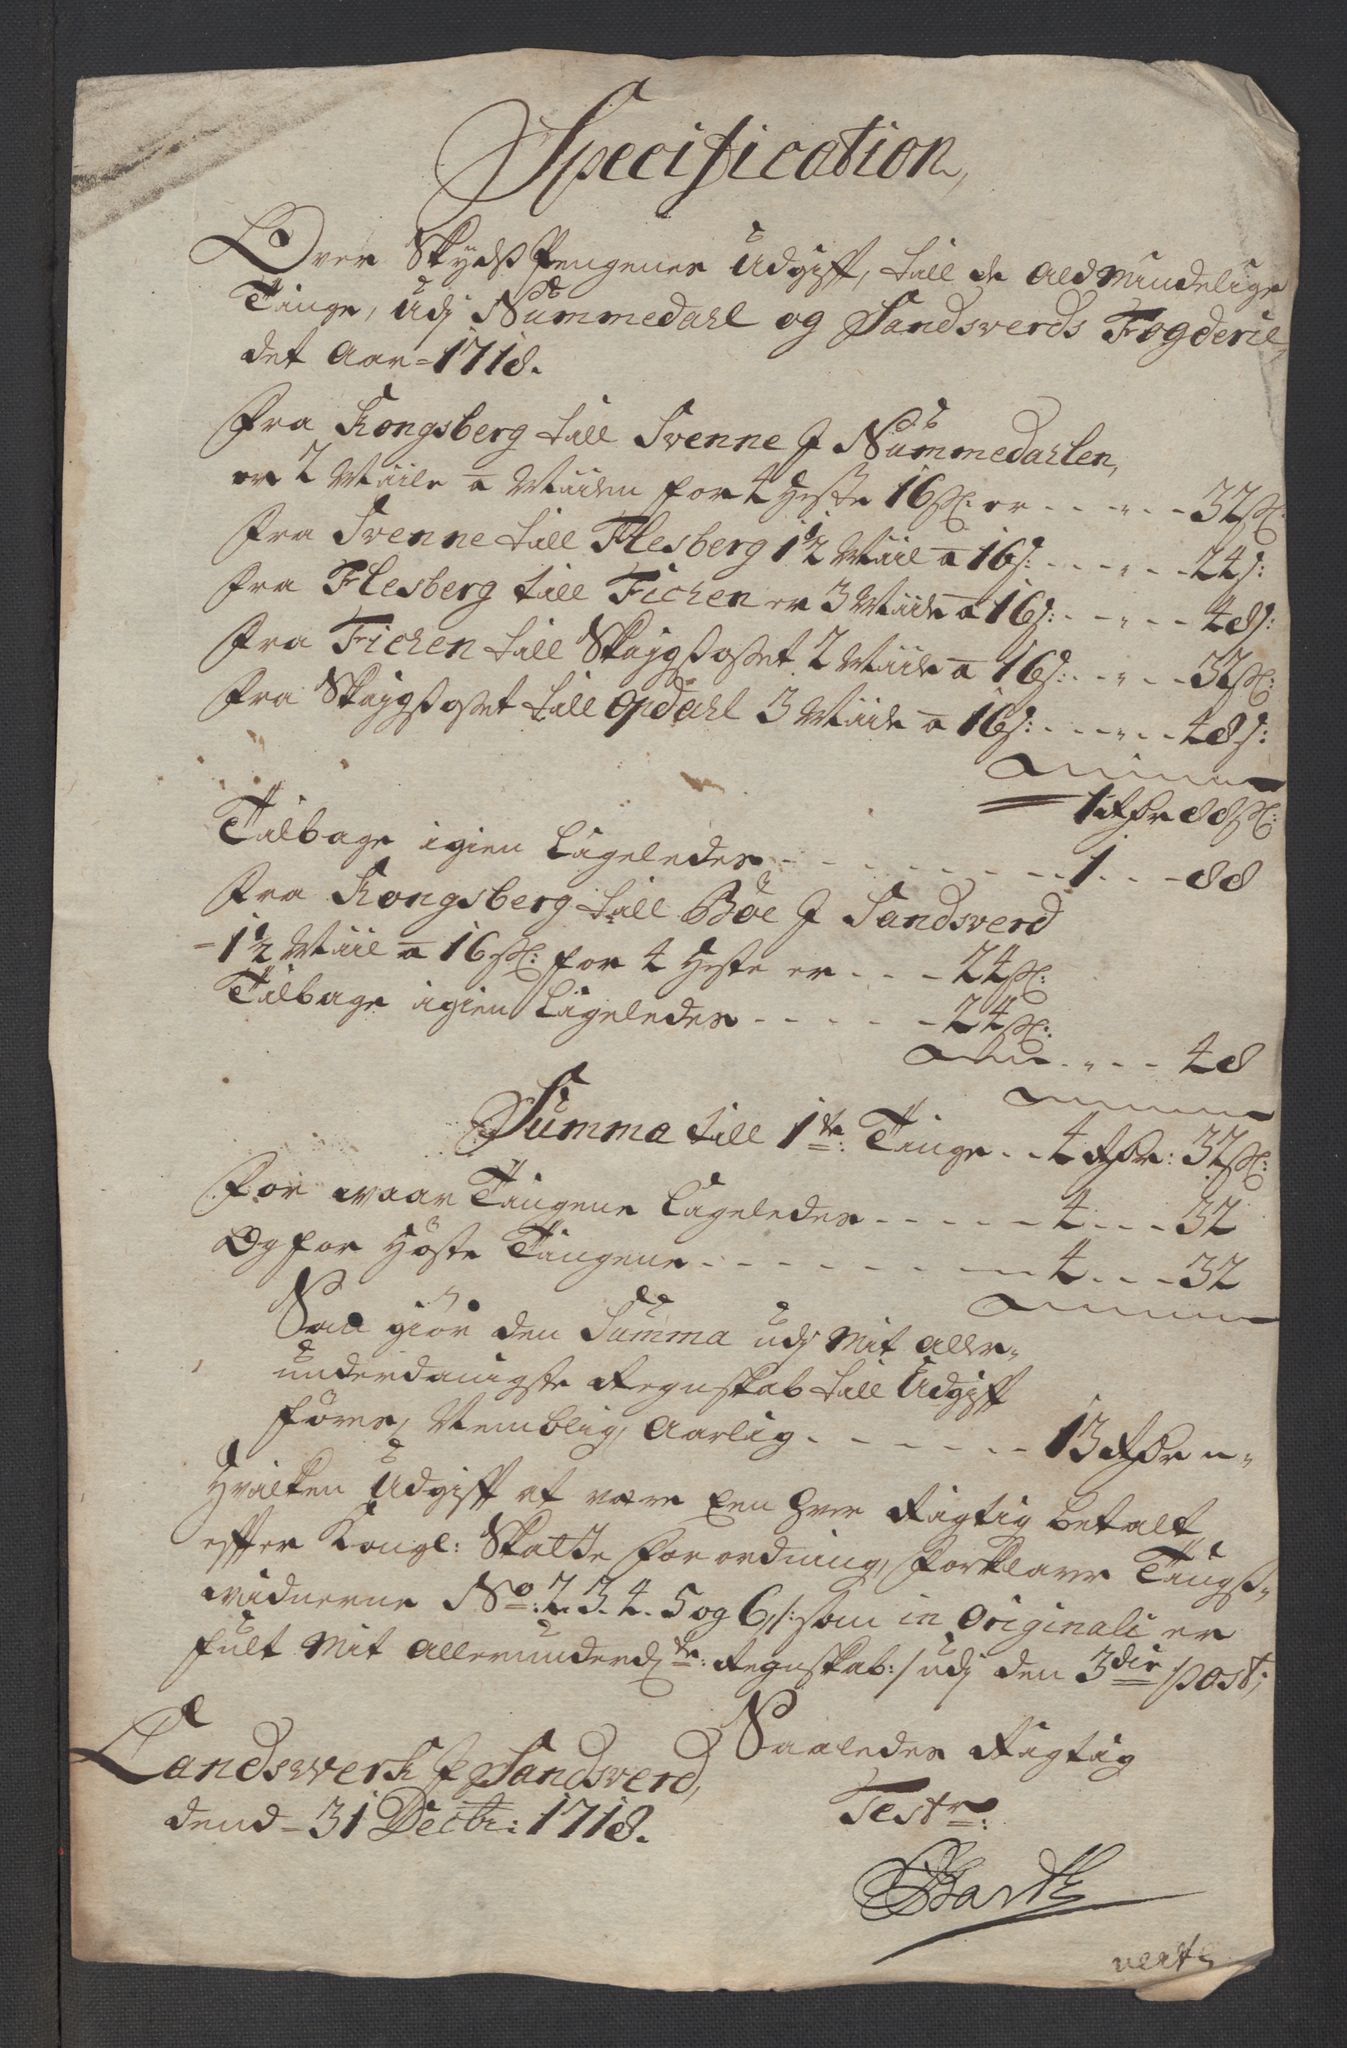 Specification,
Over Skydß Pengenes Udgifft, till de Aldmindelige
Tinge, Udj Nummedahl og Sandsverds Fogderie,
det Aar = 1718.
Fra Kongsberg till Svenne J Nummedahlen,
er 2 Miile a Miilen for 4 Heste 16 sk: er - - - " - - 32 sk:
Fra Svenne till Flesberg 1½ Miil a 16 s: - - - " - - 24 s:
Fra Flesberg till Fichen er 3 Miile a 16 s: - - - " - - 48 s:
Fra Fichen till Skjgßoßet 2 Miile a 16 s: - - " - - 32 sk:
Fra Skjgßoßet till Opdahl 3 Miile a 16 s: - - - " - - 48 s:
1 Rdr 88 sk:
Tilbage igien Ligeledes - - - - - - - - - 1 - - - 88
Fra Kongsberg till Böe J Sandsverd
- 1½ Miil a 16 sk: for 4 Heste er - - - 24 sk:
Tilbage igien Ligeledes - - - - - - 24 sk:
- - " - - 48
Summa till 1te: Tinge - - 4 Rdr: 32 sk:
For waar Tingene Ligeledes - - - - - 4 - - - 32
Og for Höste Tingene - - - - - - - - 4 - - - 32
Saa giör den Summa udj Mit aller-
underdanigste Regnskab till Udgifft
föres, Nemblig, Aarlig - - - - - - - 13 Rdr "-
Hvilken Udgifft at være Een hver Rigtig betalt,
effter Kongl: Skatte Forordning, forklarer Tingß-
widnerne No: 2. 3. 4. 5 og 6, /: som in Originali er
fult Mit Allerunderd: ste: Regnskab: / udj den 3die post;
Saaledes Rigtig
Landswerk J Sandsverd,
dend - 31 Decbr: 1718.
Testr:
Barth
vert